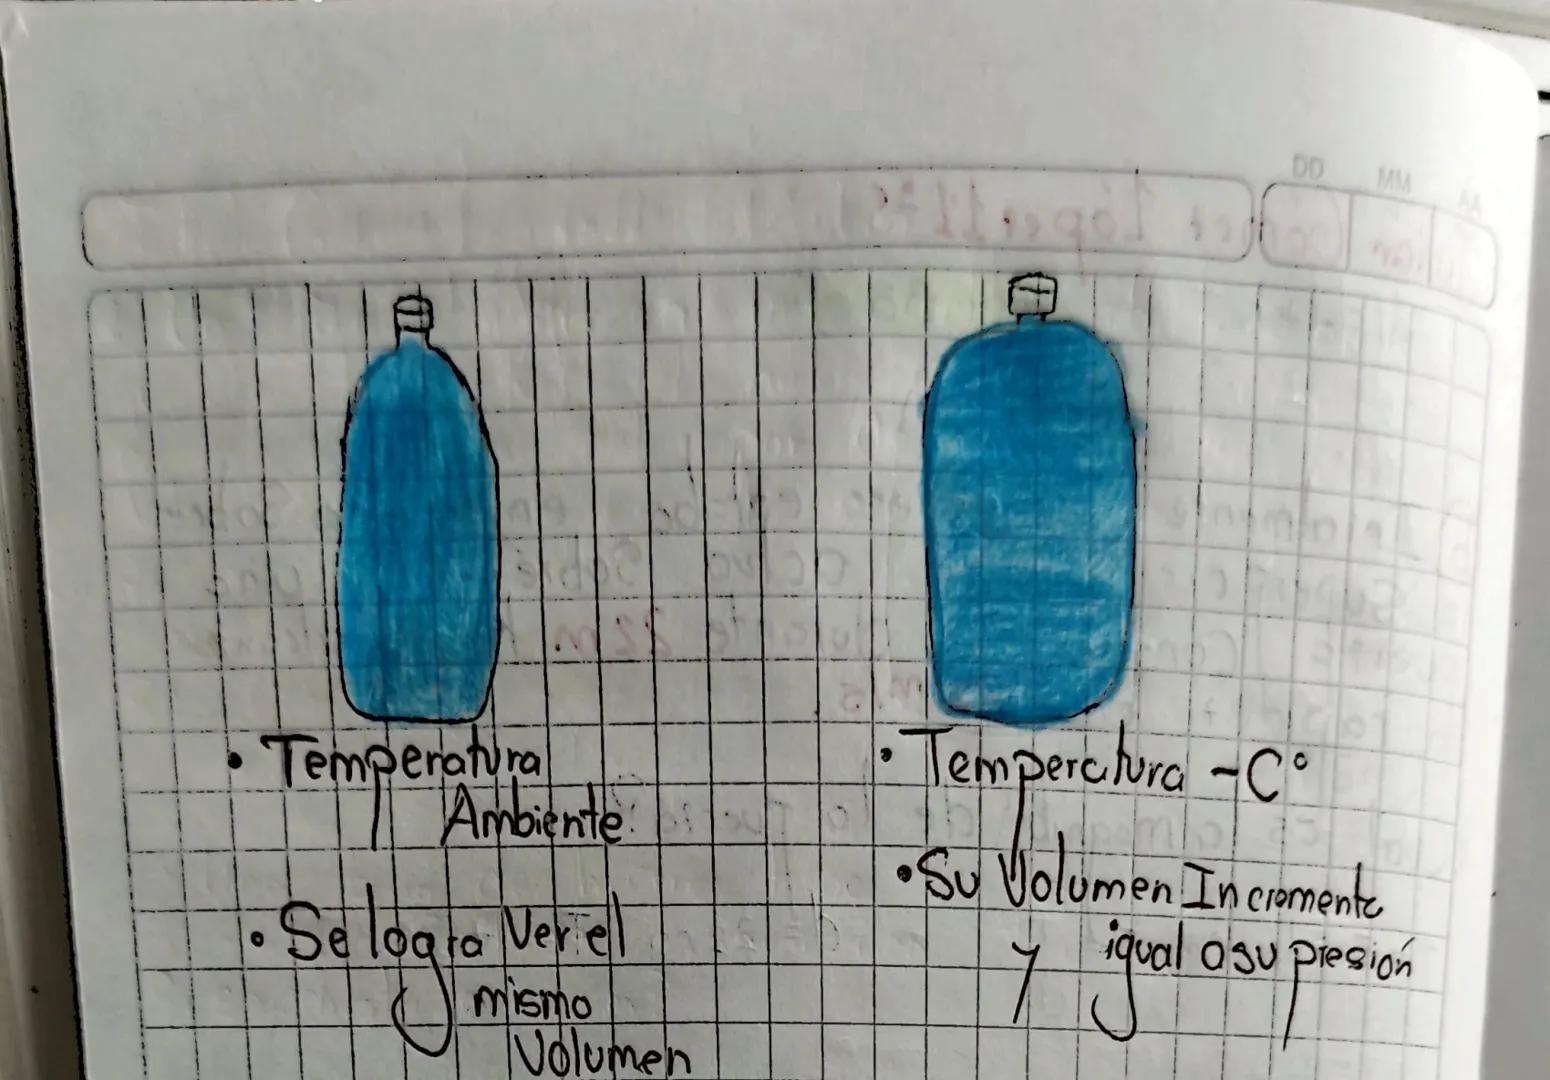 DD MM AA
• Temperatura
Ambiente.
• Se logra Ver el
mismo
Volumen
• Temperatura -C°
• Su Volumen Incremente
y igual a su presión